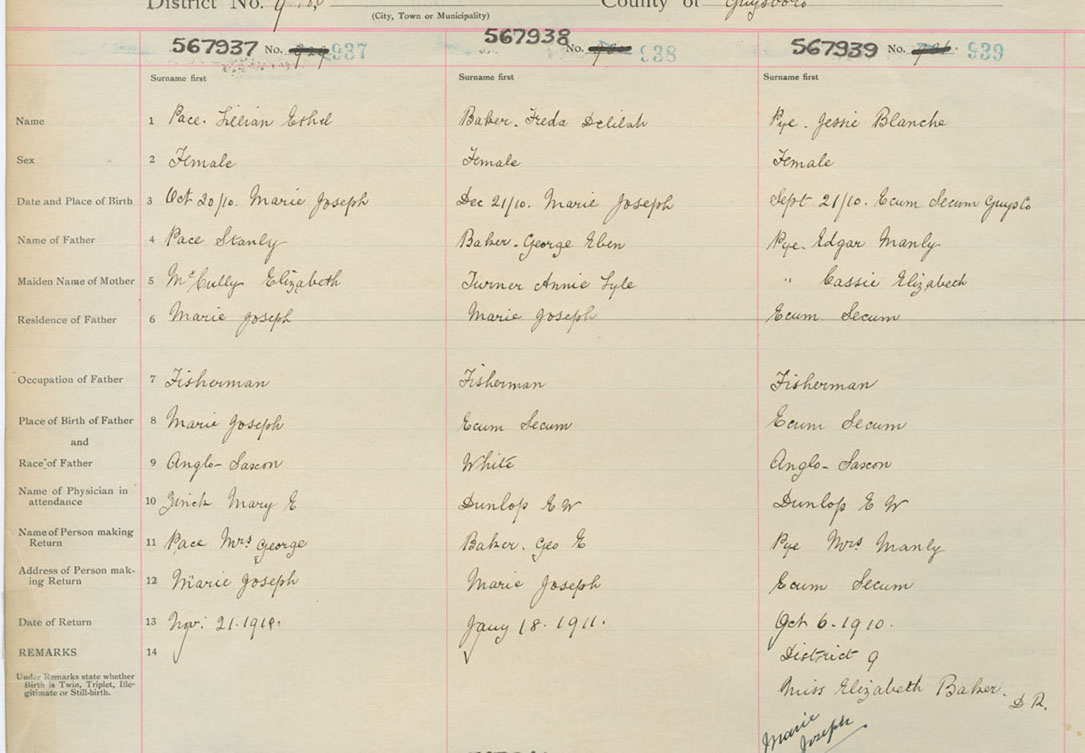 District No. 9 County of Guysboro
(City, Town or Municipality)
567937 No. 937 567938 No. 938 567939 No. 939
Surname first Surname first Surname first
Name 1 Pace. Lillian Ethel Baker. Freda Delilah Pye. Jessie Blanche
Sex 2 Female Female Female
Date and Place of Birth 3 Oct 20/10. Marie Joseph Dec 21/10. Marie Joseph Sept 21/10. Ecum Secum Guys Co
Name of Father 4 Pace Stanly Baker. George Eben Pye. Edgar Manly
Maiden Name of Mother 5 McCully Elizabeth Turner Annie Lyle " Cassie Elizabeth
Residence of Father 6 Marie Joseph Marie Joseph Ecum Secum
Occupation of Father 7 Fisherman Fisherman Fisherman
Place of Birth of Father 8 Marie Joseph Ecum Secum Ecum Secum
and
Race of Father 9 Anglo-Saxon White Anglo-Saxon
Name of Physician in
attendance 10 Zinck Mary E Dunlop E W Dunlop E W
Name of Person making
Return 11 Pace Mrs George Baker. Geo E Pye Mrs Manly
Address of Person mak-
ing Return 12 Marie Joseph Marie Joseph Ecum Secum
Date of Return 13 Nov. 21.1910. Jany 18. 1911. Oct 6-1910.
REMARKS 14 District 9
Under Remarks state whether
Birth is Twin, Triplet, Ille-
gitimate or Still-birth.
Miss Elizabeth Baker. D R.
Marie
Joseph